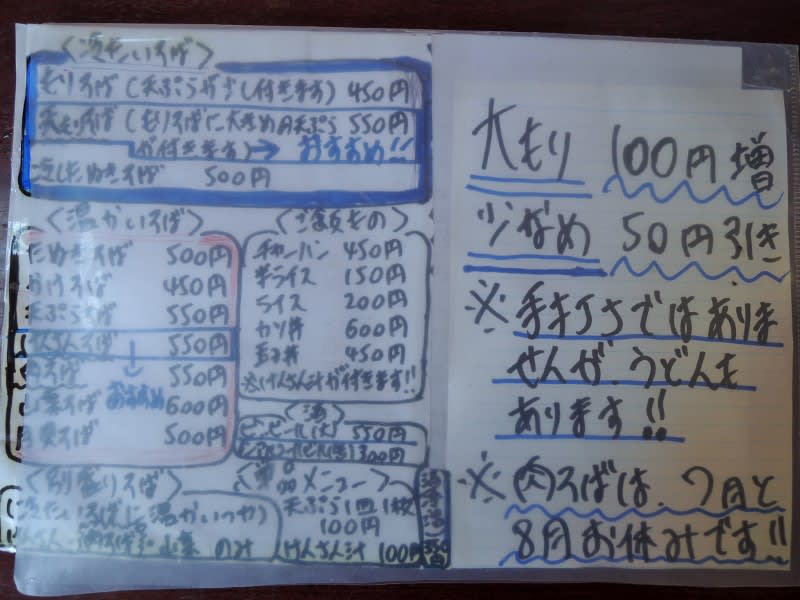 〈冷たいそば〉
もりそば(天ぷらが少し付きます) 450円
天もりそば(もりそばに大きめの天ぷら 550円
が付きます)→ おすすめ!!
冷したぬきそば 500円
〈温かいそば〉
たぬきそば 500円
かけそば 450円
天ぷらそば 550円
けんちんそば 550円
肉そば 550円
おすすめ
山菜そば 600円
月見そば 500円
〈ご飯もの〉
チャーハン 450円
半ライス 150円
ライス 200円
カツ丼 600円
玉子丼 450円
※けんちん汁が付きます!!
〈酒〉
ビンビール(大) 550円
300円
〈別盛りそば〉
(冷たいそばに温かいつゆ)
山菜 のみ
〈単品メニュー〉
天ぷら1皿1枚
100円
けんちん汁 100円
大もり 100円増
少なめ 50円引き
※手打ちではありま
せんが、うどんも
あります!!
※肉そばは、7月と
8月お休みです!!